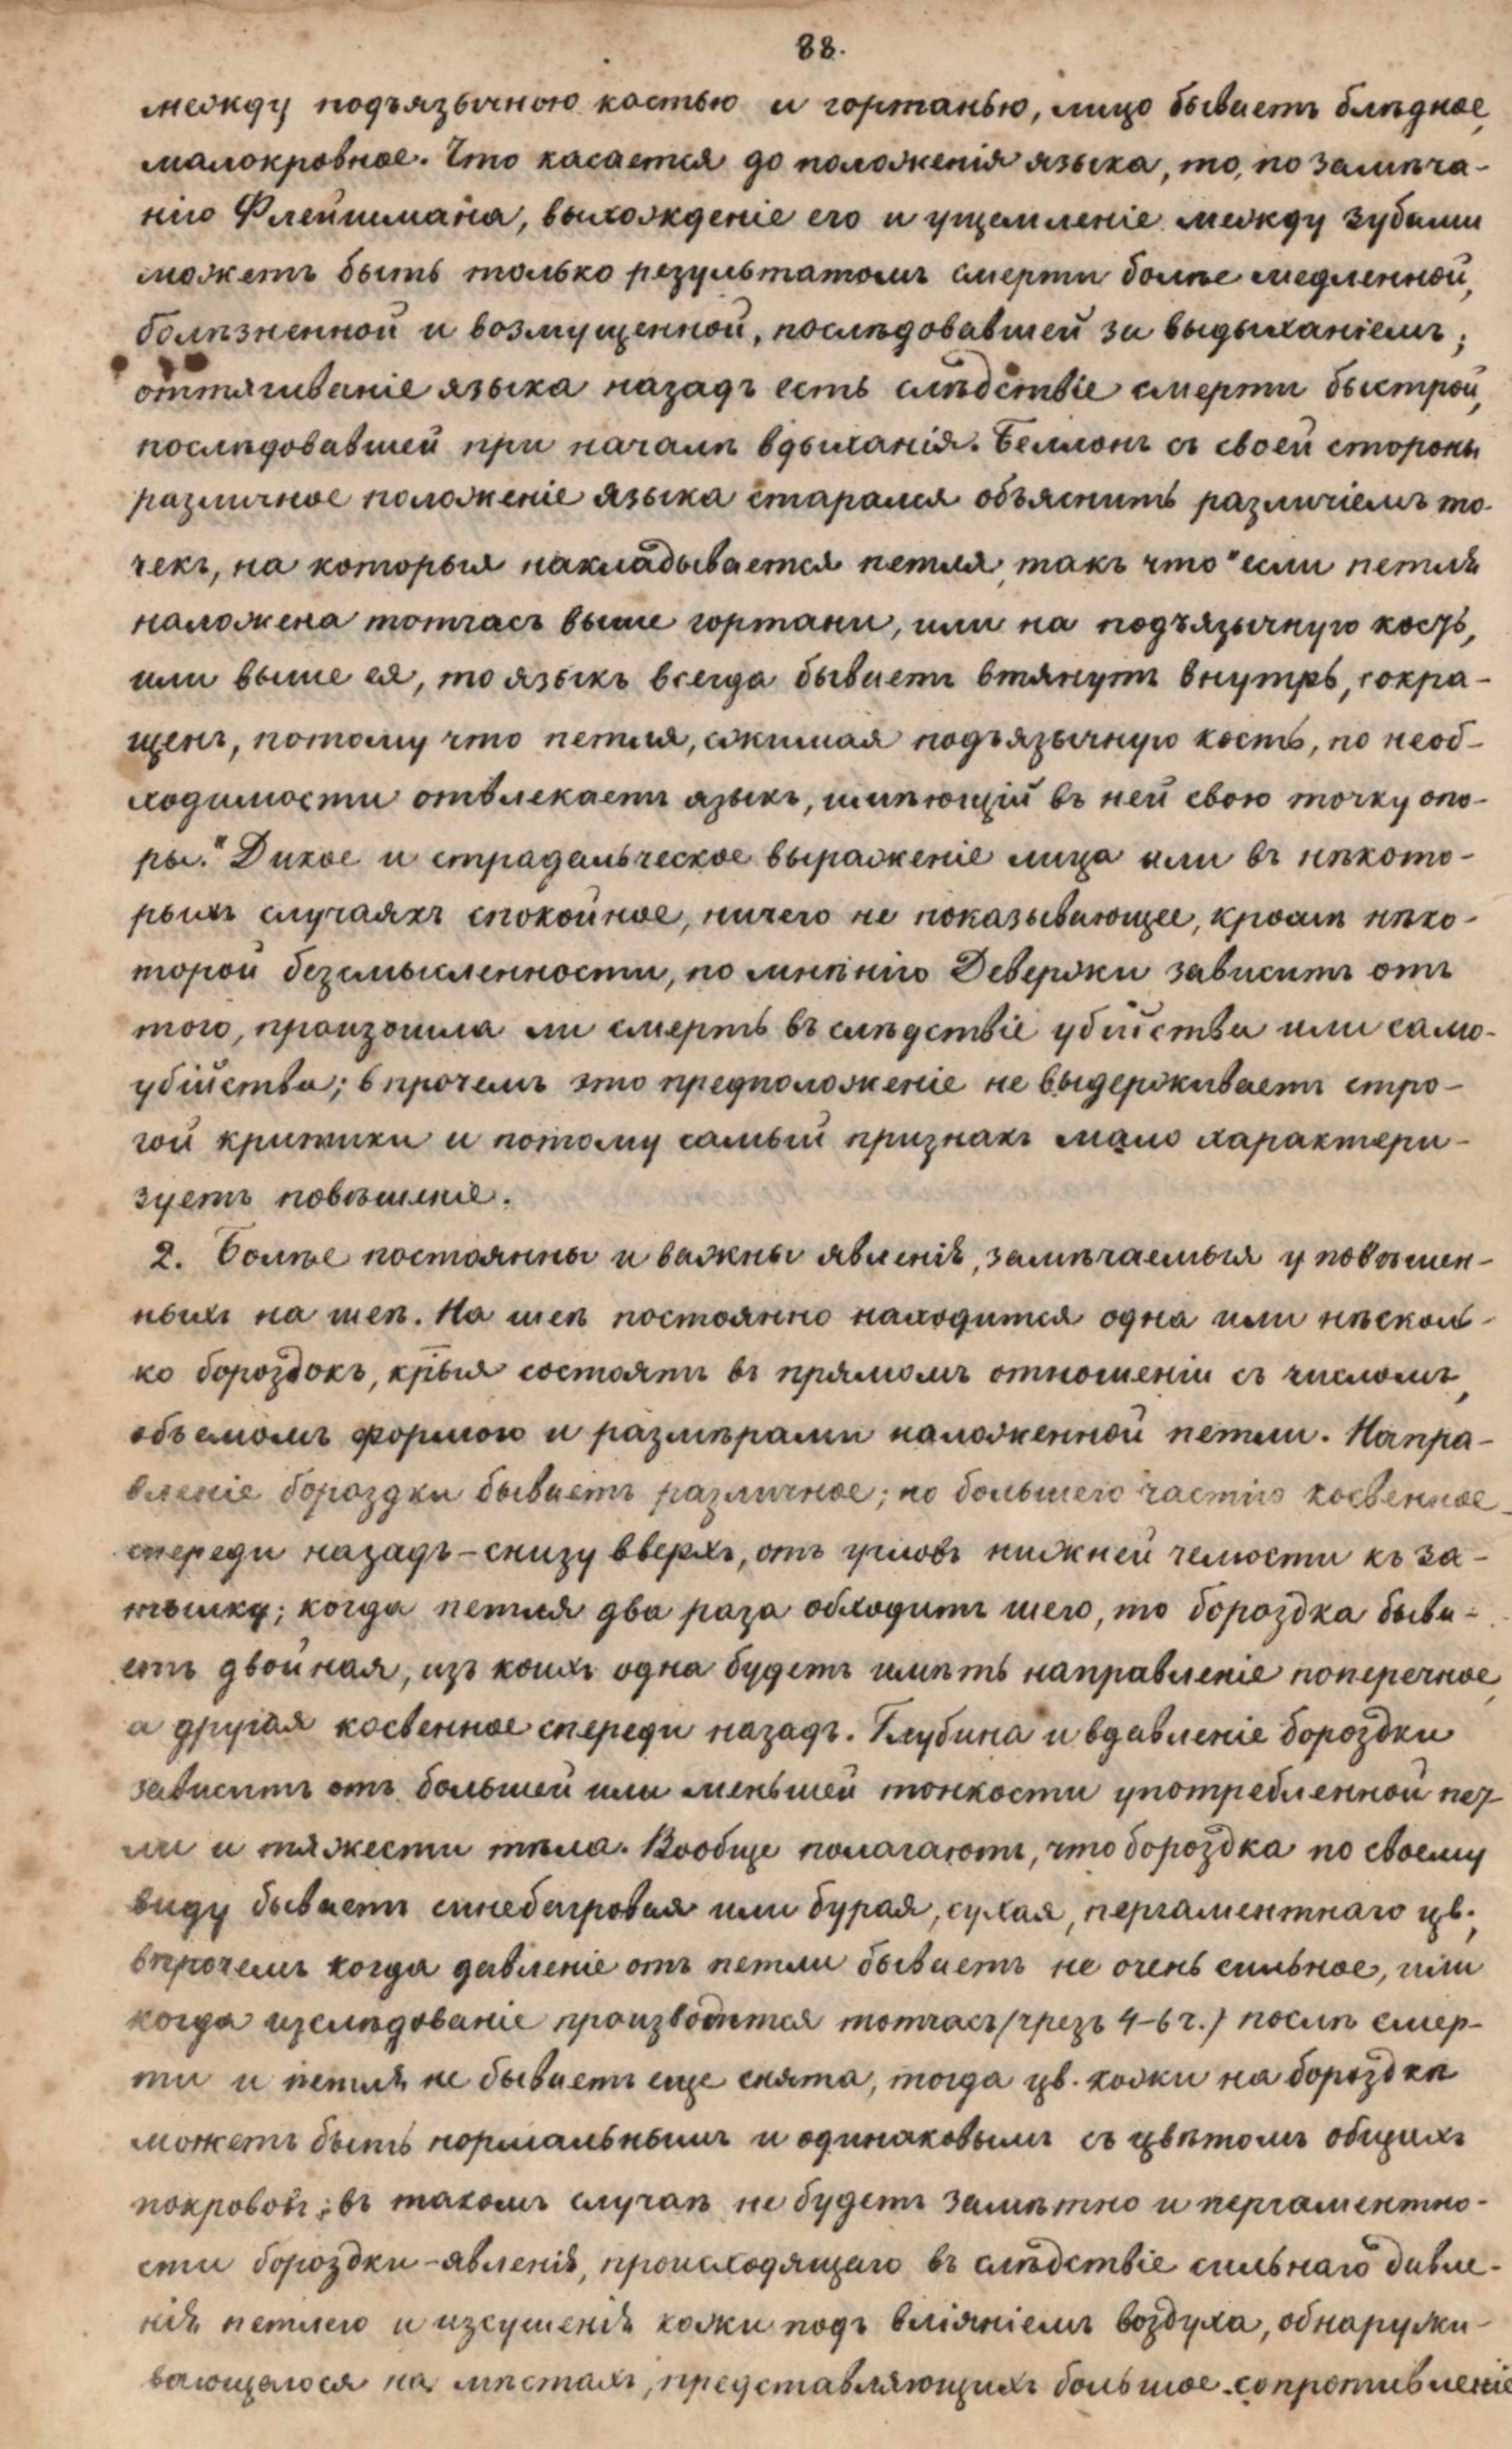 88.
между подъязычною костью и гортанью, лицо бываетъ блѣдное,
малокровное. Что касается до положенія языка, то, по замѣча-
нію Флейшмана, выхожденіе его и ущемленіе между зубами
можетъ быть только результатомъ смерти болѣе медленной,
болѣзненной и возмущенной, послѣдовавшей за выдыханіемъ;
оттягиваніе языка назадъ есть слѣдствіе смерти быстрой,
послѣдовавшей при началѣ вдыханія. Беллонъ съ своей стороны
различное положеніе языка старался объяснить различіемъ то-
чекъ, на которыя накладывается петля, такъ что "если петля
наложена тотчасъ выше гортани, или на подъязычную кость,
или выше ея, то языкъ всегда бываетъ втянутъ внутрь, сокра-
щенъ, потому что петля, сжимая подъязычную кость, по необ-
ходимости отвлекаетъ языкъ, имѣющій въ ней свою точку опо-
ры." Дикое и страдальческое выраженіе лица или въ нѣкото-
рыхъ случаяхъ спокойное, ничего не показывающее, кромѣ нѣко-
торой безсмысленности, по мнѣнію Девержи зависитъ отъ
того, произошла ли смерть въ слѣдствіе убійства или само-
убійства; впрочемъ это предположеніе не выдерживаетъ стро-
гой критики и потому самый признакъ мало характери-
зуетъ повѣшеніе.
2. Болѣе постоянны и важны явленія, замѣчаемыя у повѣшен-
ныхъ на шеѣ. На шеѣ постоянно находится одна или нѣсколь-
ко бороздокъ, крыя состоятъ въ прямомъ отношеніи съ числомъ,
объемомъ формою и размѣрами наложенной петли. Напра-
вленіе бороздки бываетъ различное; по большею частію косвенное
спереди назадъ - снизу вверхъ, отъ угловъ нижней челюсти къ за-
тылку; когда петля два раза обходитъ шею, то бороздка быва-
етъ двойная, изъ коихъ одна будетъ имѣть направленіе поперечное,
а другая косвенное спереди назадъ. Глубина и вдавленіе бороздки
зависитъ отъ большей или меньшей тонкости употребленной пет-
ли и тяжести тѣла. Вообще полагаютъ, что бороздка по своему
виду бываетъ синебагровая или бурая, сухая, пергаментнаго цв.,
впрочемъ когда давленіе отъ петли бываетъ не очень сильное, или
когда изслѣдованіе производится тотчасъ /чрезъ 4-6 ч./ послѣ смер-
ти и петля не бываетъ еще снята, тогда цв. кожи на бороздкѣ
можетъ быть нормальнымъ и одинаковымъ съ цвѣтомъ общихъ
покрововъ; въ такомъ случаѣ не будетъ замѣтно и пергаментно-
сти бороздки - явленія, происходящаго въ слѣдствіе сильнаго давле-
нія петлею и изсушенія кожи подъ вліяніемъ воздуха, обнаружи-
вающагося на мѣстахъ, представляющихъ большое сопротивленіе